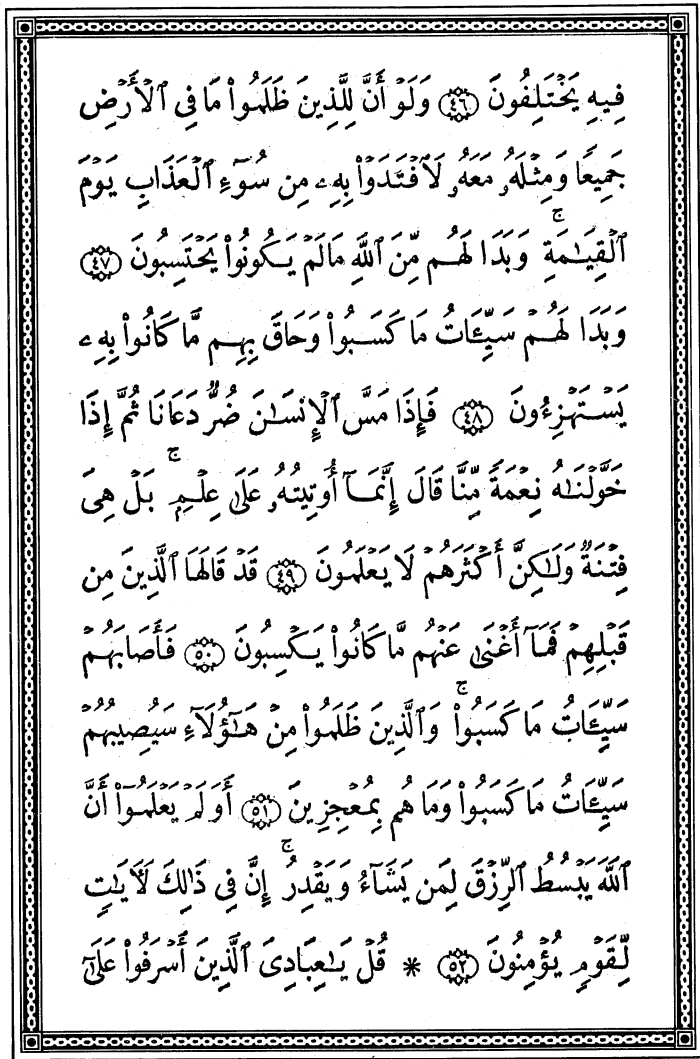 فِيهِ يَخْتَلِفُونَ ﴿٤٦﴾ وَلَوْ أَنَّ لِلَّذِينَ ظَلَمُوا۟ مَا فِى ٱلْأَرْضِ
جَمِيعًا وَمِثْلَهُۥ مَعَهُۥ لَٱفْتَدَوْا۟ بِهِۦ مِن سُوٓءِ ٱلْعَذَابِ يَوْمَ
ٱلْقِيَـٰمَةِ ۚ وَبَدَا لَهُم مِّنَ ٱللَّهِ مَا لَمْ يَكُونُوا۟ يَحْتَسِبُونَ ﴿٤٧﴾
وَبَدَا لَهُمْ سَيِّـَٔاتُ مَا كَسَبُوا۟ وَحَاقَ بِهِم مَّا كَانُوا۟ بِهِۦ
يَسْتَهْزِءُونَ ﴿٤٨﴾ فَإِذَا مَسَّ ٱلْإِنسَـٰنَ ضُرٌّ دَعَانَا ثُمَّ إِذَا
خَوَّلْنَـٰهُ نِعْمَةً مِّنَّا قَالَ إِنَّمَآ أُوتِيتُهُۥ عَلَىٰ عِلْمٍۭ ۚ بَلْ هِىَ
فِتْنَةٌ وَلَـٰكِنَّ أَكْثَرَهُمْ لَا يَعْلَمُونَ ﴿٤٩﴾ قَدْ قَالَهَا ٱلَّذِينَ مِن
قَبْلِهِمْ فَمَآ أَغْنَىٰ عَنْهُم مَّا كَانُوا۟ يَكْسِبُونَ ﴿٥٠﴾ فَأَصَابَهُمْ
سَيِّـَٔاتُ مَا كَسَبُوا۟ ۚ وَٱلَّذِينَ ظَلَمُوا۟ مِنْ هَـٰٓؤُلَآءِ سَيُصِيبُهُمْ
سَيِّـَٔاتُ مَا كَسَبُوا۟ وَمَا هُم بِمُعْجِزِينَ ﴿٥١﴾ أَوَلَمْ يَعْلَمُوٓا۟ أَنَّ
ٱللَّهَ يَبْسُطُ ٱلرِّزْقَ لِمَن يَشَآءُ وَيَقْدِرُ ۚ إِنَّ فِى ذَٰلِكَ لَـَٔايَـٰتٍ
لِّقَوْمٍ يُؤْمِنُونَ ﴿٥٢﴾ * قُلْ يَـٰعِبَادِىَ ٱلَّذِينَ أَسْرَفُوا۟ عَلَىٰٓ